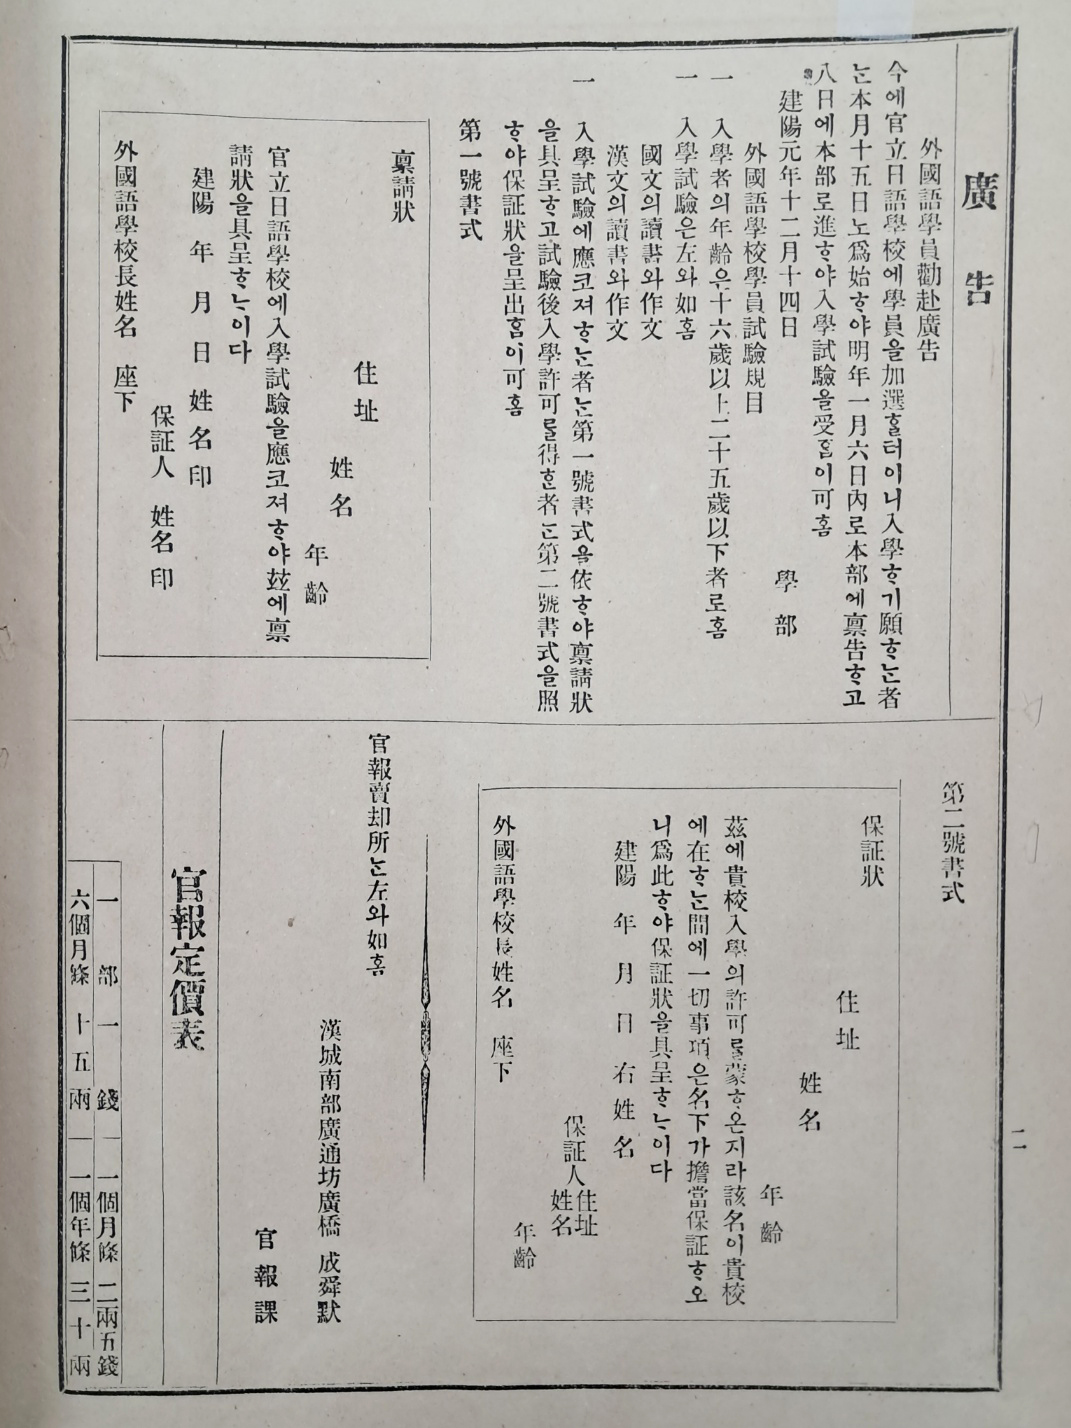 廣告
外國語學員勸赴廣告
今에官立日語學校에學員을加選ᄒᆞᆯ터이니入學ᄒᆞ기願ᄒᆞᄂᆞᆫ者
ᄂᆞᆫ本月十五日노爲始ᄒᆞ야明年一月六日內로本部에稟告ᄒᆞ고
八日에本部로進ᄒᆞ야入學試驗을受ᄒᆞᆷ이可홈
建陽元年十二月十四日
學部
外國語學校學員試驗規目
一 入學者의年齡은十六歲以上二十五歲以下者로홈
一 入學試驗은左와如홈
國文의讀書와作文
漢文의讀書와作文
一 入學試驗에應코져ᄒᆞᄂᆞᆫ者ᄂᆞᆫ第一號書式을依ᄒᆞ야稟請狀
을具呈ᄒᆞ고試驗後入學許可ᄅᆞᆯ得ᄒᆞᆫ者ᄂᆞᆫ第二號書式을照
ᄒᆞ야保証狀을呈出홈이可홈
第一號書式
稟請狀
住址
姓名
年齡
官立日語學校에入學試驗을應코져ᄒᆞ야玆에稟
請狀을具呈ᄒᆞᄂᆞ이다
建陽 年 月 日 姓名印
保証人 姓名印
外國語學校長姓名 座下
第二號書式
保証狀
住址
姓名
年齡
茲에貴校入學의許可ᄅᆞᆯ蒙ᄒᆞ온지라該名이貴校
에在ᄒᆞᄂᆞᆫ間에一切事項은名下가擔當保証ᄒᆞ오
니爲此ᄒᆞ야保証狀을具呈ᄒᆞᄂᆞ이다
建陽 年 月 日 右姓名
保証人 住址
姓名
年齡
外國語學校長姓名 座下
官報賣却所ᄂᆞᆫ左와如홈
漢城南部廣通坊廣橋 成舜默
官報課
官報定價表
一部 一錢 一個月條 二兩五錢
六個月條 十五兩 一個年條 三十兩
二